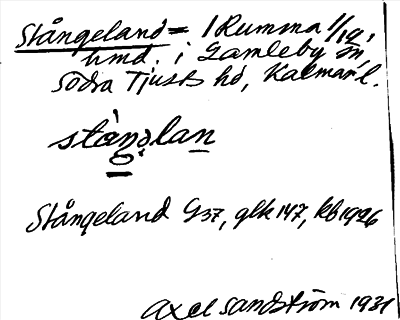 Stångeland = 1 Rumma 1/19,
hmd. i Gamleby sn
Södra Tjusts hd, Kalmar l.
stàŋəlan
Stångeland G37, glk 147, kb 1926
Axel Sandström 1931